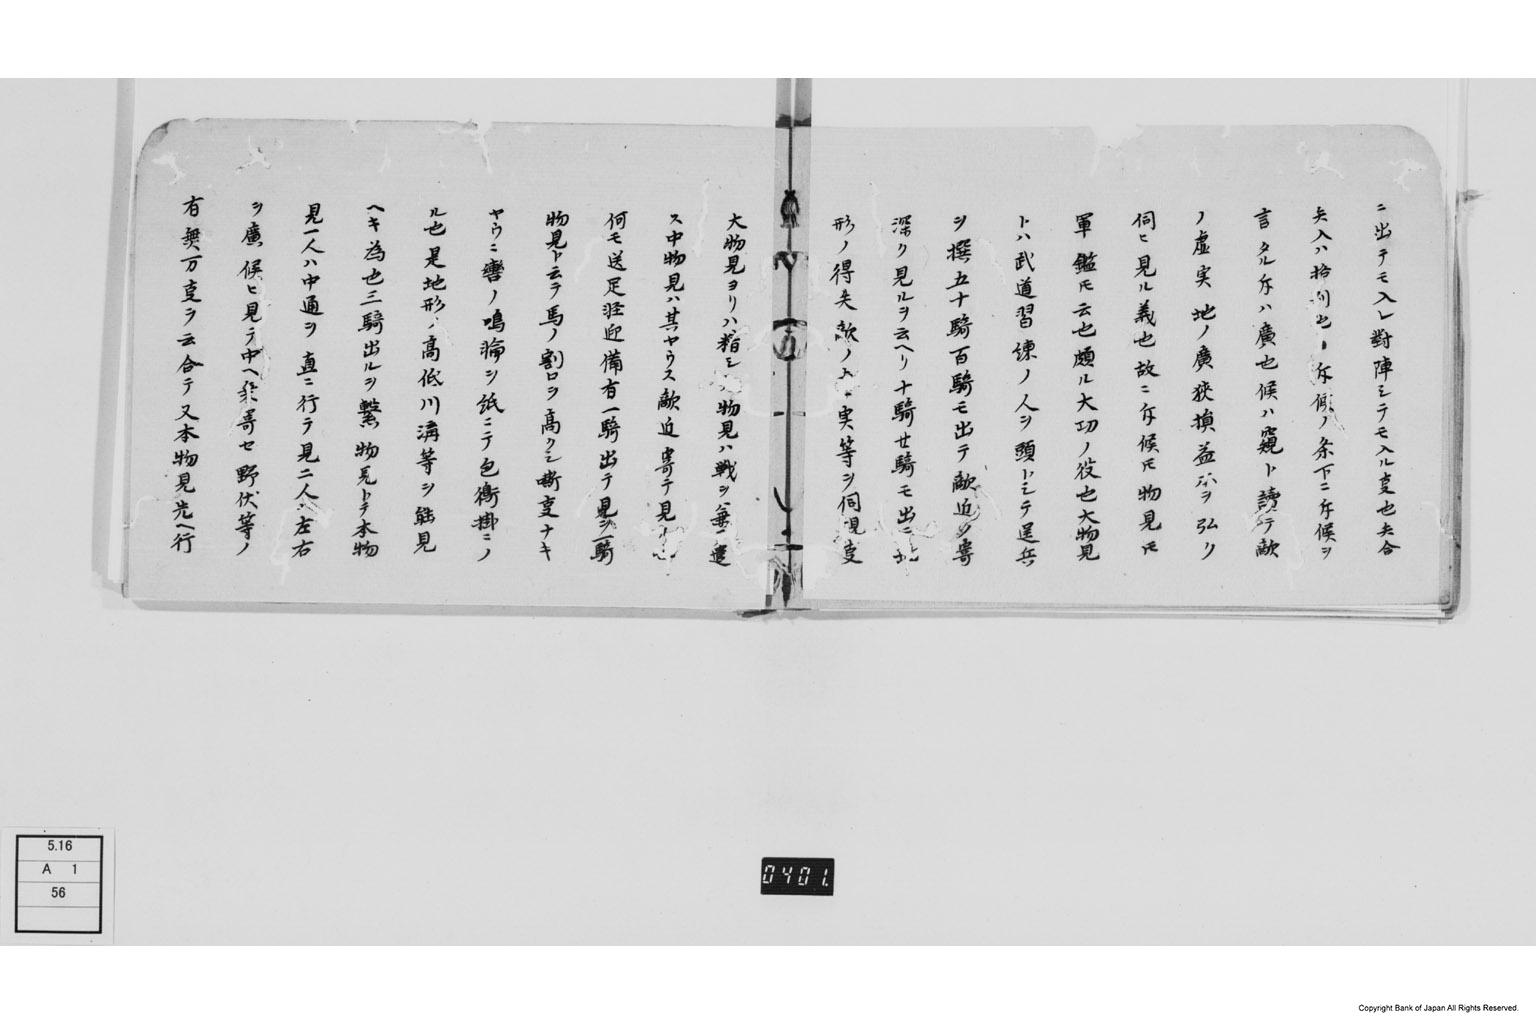 ニ出テモ入レ對陣シテモ入ル叓也夫合
矢入ハ拾 斥候ノ条下ニ斥候ヲ
言タル斥ハ廣也候ハ窺ト讀テ敵
ノ虚実地ノ廣狭損益 ヲ弘ク
伺ヒ見ル義也故ニ斥候モ物見モ
軍鑑モ云也頗ル大功ノ役也大物見
トハ武道習練ノ人ヲ頭トシテ逞兵
ヲ撰五十騎百騎モ出テ敵近ク寄
深ク見ルヲ云ヘリ十騎廿騎モ出
形ノ得失敵ノ 実等ヲ伺覗叓
大物見ヨリハ 物見ハ戦ヲ
ス中物見ハ其ヤウス敵近寄テ見
何モ送足軽迎備有一騎出テ見ヲ一騎
物見ト云テ馬ノ割口ヲ高クシ嘶叓ナキ
ヤウニ轡ノ鳴 ヲ紙ニテ包 掛ニノ
ル也是地形ノ高低川溝等ヲ能見
ヘキ為也三騎出ルヲ繋物見トテ本物
見一人ハ中通ヲ直ニ行テ見二人ハ左右
ヲ廣候ヒ見テ中ヘ 寄セ野伏等ノ
有無万叓ヲ云合テ又本物見先ヘ行
五
5.16
A 1
56
0401.
Copyright Bank of Japan All Rights Reserved.